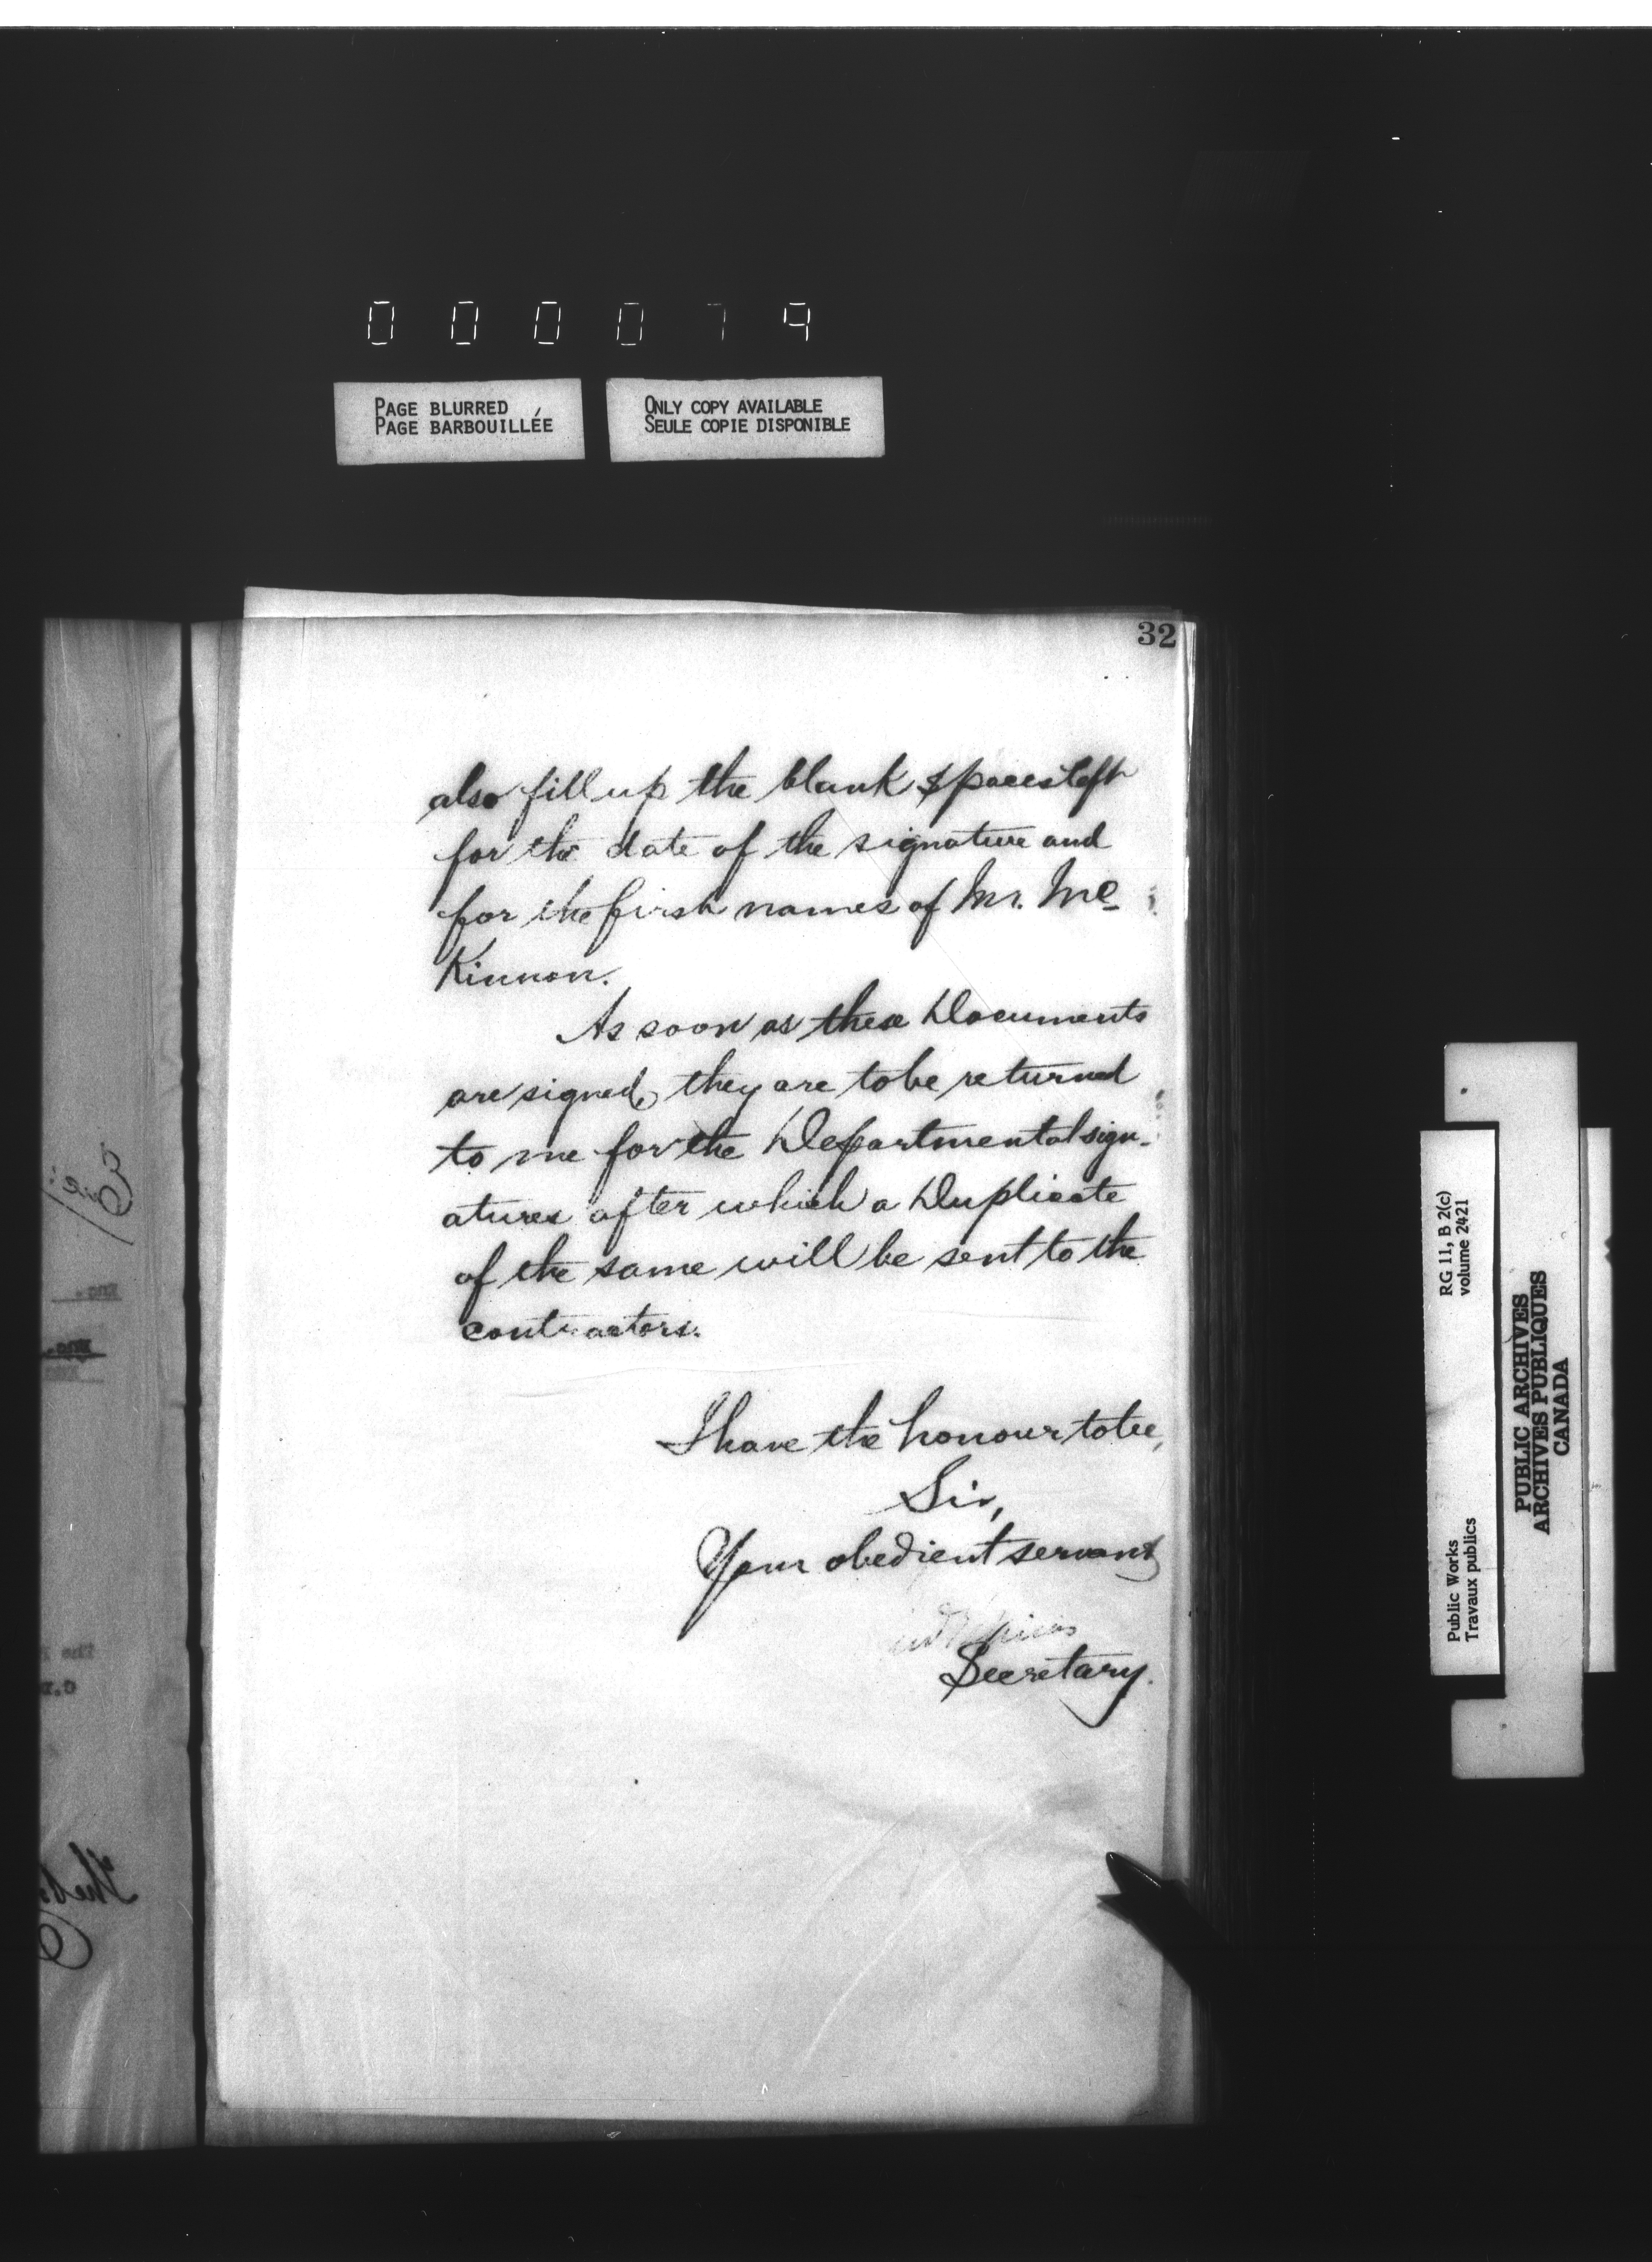 000079
PAGE BLURRED
PAGE BARBOUILLÉE
ONLY COPY AVAILABLE
SEULE COPIE DISPONIBLE
32
also fill up the blank spaces left
for the date of the signature and
for the first names of Mr. Mc
Kinnon.
As soon as these Documents
are signed, they are to be returned
to me for the Departmental sign-
atures after which a Duplicate
of the same will be sent to the
contractors.
I have the honour to be,
Sir,
Your obedient servant
Secretary.
RG 11, B 2(c)
volume 2421
Public Works
Travaux publics
PUBLIC ARCHIVES
ARCHIVES PUBLIQUES
CANADA